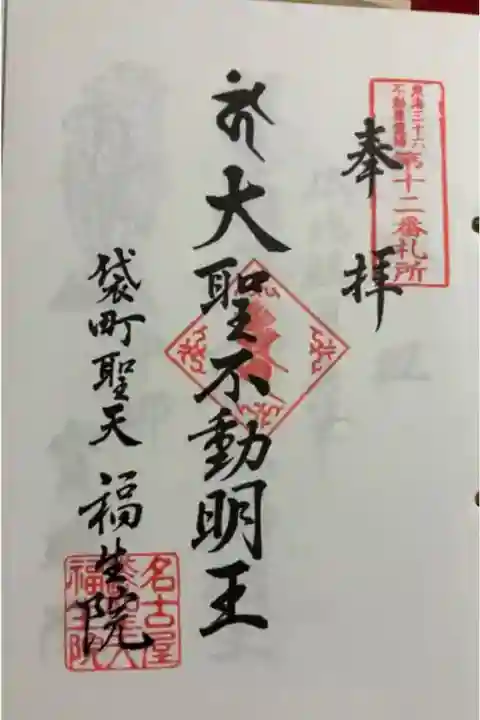 東海三十六
不動尊霊場
第十二番札所
奉拝
大聖不動明王
袋町聖天 福生院
名古屋
福生院